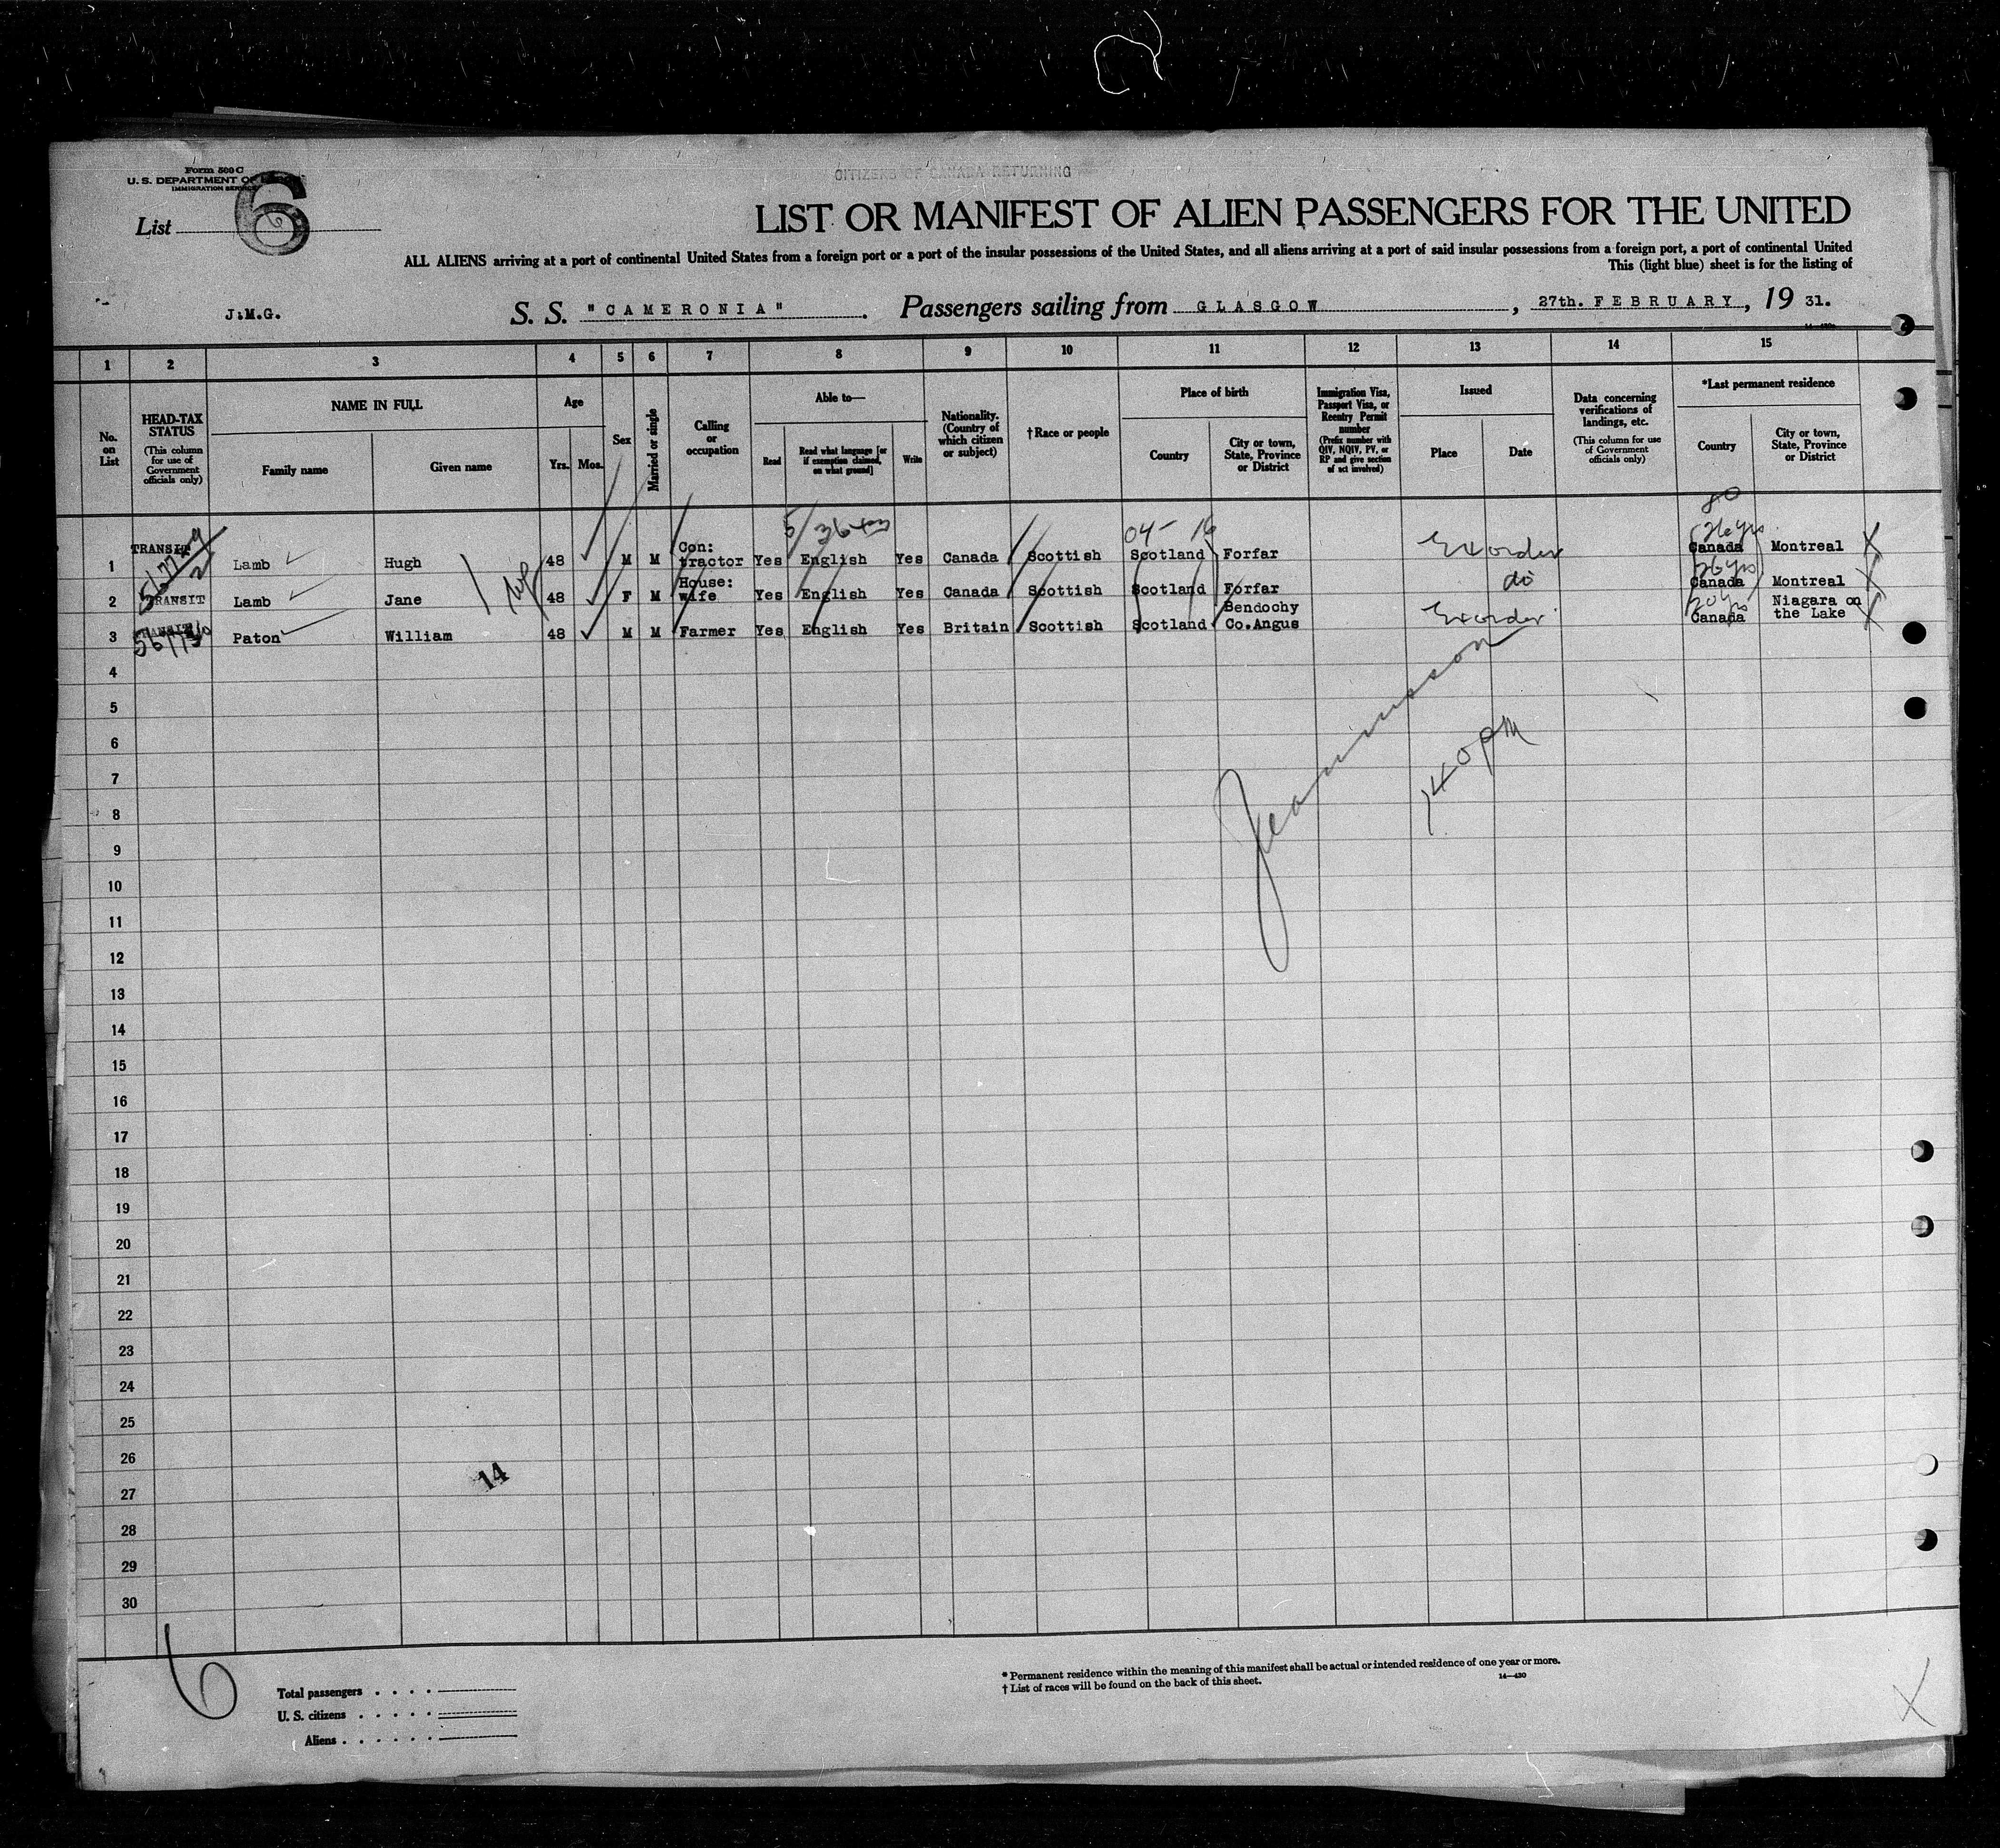 CITIZENS OF CANADA RETURNING
Form 500 C
U. S. DEPARTMENT OF
IMMIGRATION SERVICE
List 6
LIST OR MANIFEST OF ALIEN PASSENGERS FOR THE UNITED
ALL ALIENS arriving at a port of continental United States from a foreign port or a port of the insular possessions of the United States, and all aliens arriving at a port of said insular possessions from a foreign port, a port of continental United
This (light blue) sheet is for the listing of
J.M.G. S. S. "CAMERONIA". Passengers sailing from GLASGOW, 27th. FEBRUARY, 19 31.
1 2 3 4 5 6 7 8 9 10 11 12 13 14 15
No. on List
HEAD-TAX STATUS
(This column for use of Government officials only)
NAME IN FULL
Family name
Given name
Age
Yrs. Mos.
Sex
Married or single
Calling or occupation
Able to—
Read
Read what language [or if exemption claimed, on what ground]
Write
Nationality. (Country of which citizen or subject)
†Race or people
Place of birth
Country
City or town, State, Province or District
Immigration Visa, Passport Visa, or Reentry Permit number
(Prefix number with QIV, NQIV, PV, or RP and give section of act involved)
Issued
Place
Date
Data concerning verifications of landings, etc.
(This column for use of Government officials only)
*Last permanent residence
Country
City or town, State, Province or District
80
5/36 04- 16 26 yrs
1 TRANSIT Lamb Hugh 48 M M Con: tractor Yes English Yes Canada Scottish Scotland Forfar Ex order Canada Montreal X
26 yrs
2 TRANSIT Lamb Jane 48 F M House: wife Yes English Yes Canada Scottish Scotland Forfar do Canada Montreal X
20 yrs
3 TRANSIT Paton William 48 M M Farmer Yes English Yes Britain Scottish Scotland Bendochy Co.Angus Ex order Canada Niagara on the Lake X
4
5
6
7
140 PM
8
9
10
11
12
13
14
15
16
17
18
19
20
21
22
23
24
25
26
14
27
28
29
30
6
Total passengers
U. S. citizens
Aliens
* Permanent residence within the meaning of this manifest shall be actual or intended residence of one year or more.
† List of races will be found on the back of this sheet.
14—430
X